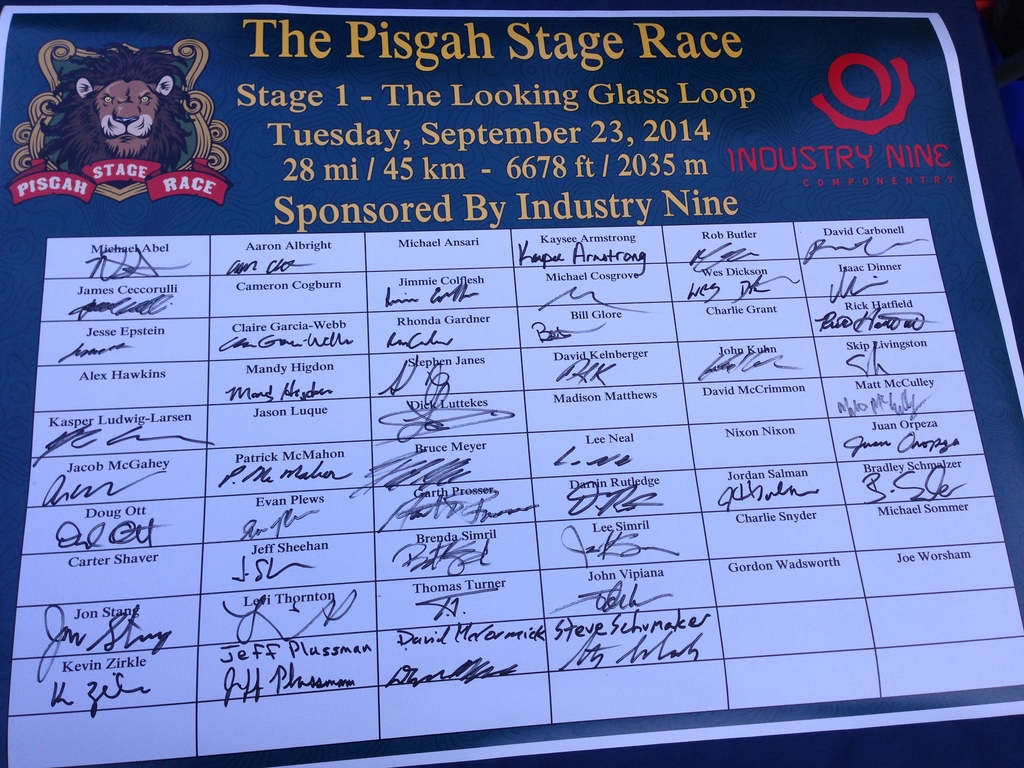 The Pisgah Stage Race
Stage 1 - The Looking Glass Loop
Tuesday, September 23, 2014
28 mi / 45 km - 6678 ft / 2035 m
Sponsored By Industry Nine
PISGAH STAGE RACE
INDUSTRY NINE
COMPONENTRY
Michael Abel Aaron Albright Michael Ansari Kaysee Armstrong Rob Butler David Carbonell
Kaysee Armstrong
James Ceccorulli Cameron Cogburn Jimmie Colflesh Michael Cosgrove Wes Dickson Isaac Dinner
Jesse Epstein Claire Garcia-Webb Rhonda Gardner Bill Glore Charlie Grant Rick Hatfield
Alex Hawkins Mandy Higdon Stephen Janes David Kelnberger John Kuhn Skip Livingston
Mandy Higdon
Kasper Ludwig-Larsen Jason Luque Dick Luttekes Madison Matthews David McCrimmon Matt McCulley
Jacob McGahey Patrick McMahon Bruce Meyer Lee Neal Nixon Nixon Juan Orpeza
P. McMahon Juan Oropeza
Doug Ott Evan Plews Garth Prosser Darrin Rutledge Jordan Salman Bradley Schmalzer
Carter Shaver Jeff Sheehan Brenda Simril Lee Simril Charlie Snyder Michael Sommer
Jon Stang Levi Thornton Thomas Turner John Vipiana Gordon Wadsworth Joe Worsham
Kevin Zirkle Jeff Plassman David McCormick Steve Schumaker
Jeff Plassmann